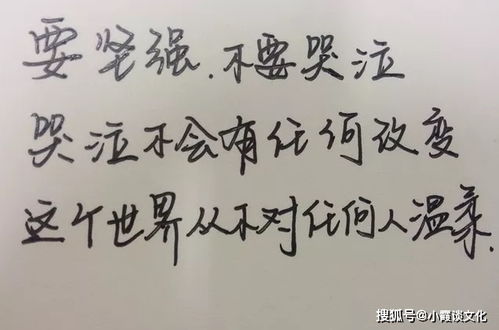 要坚强.不要哭泣
哭泣不会有任何改变
这个世界从不对任何人温柔.
搜狐号@小霞谈文化